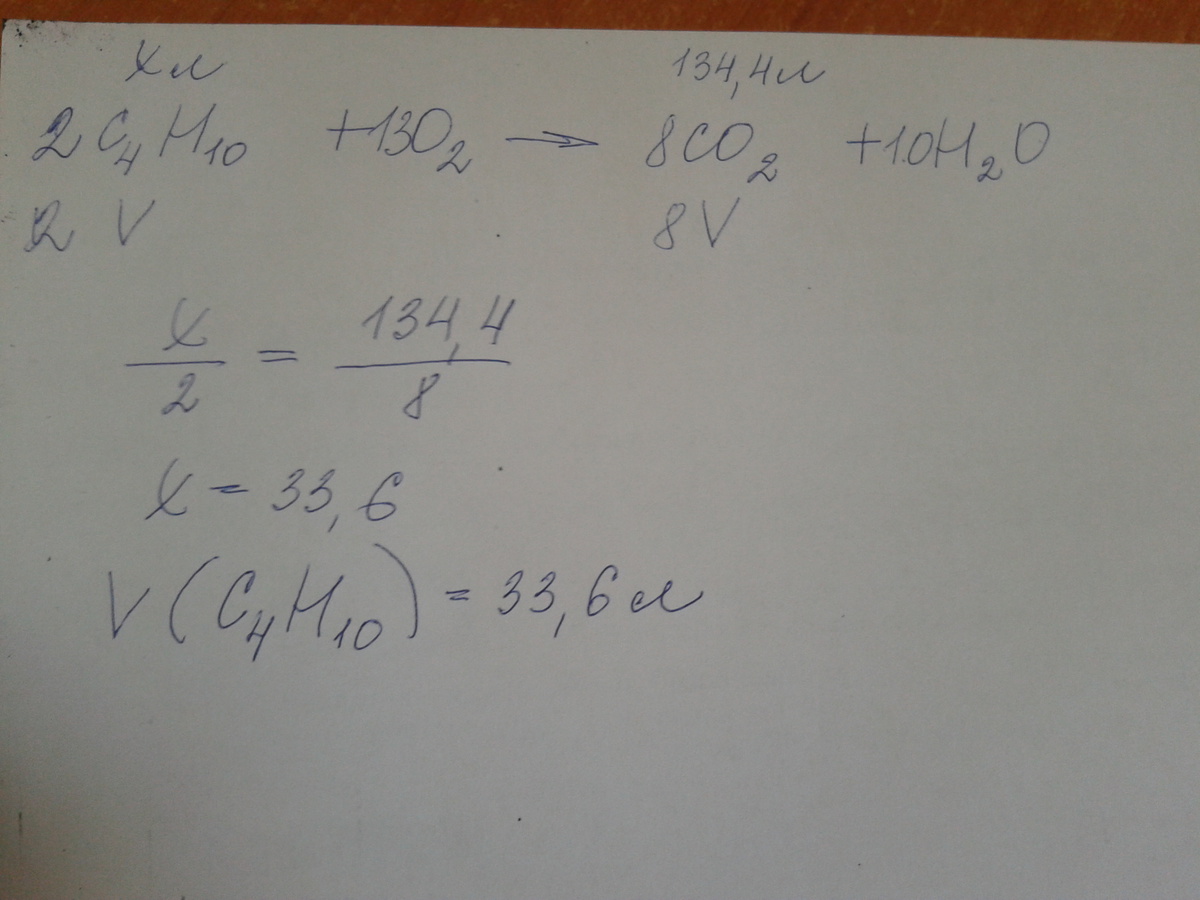 x л 134,4 л
2 C₄H₁₀ +13O₂ → 8CO₂ +10H₂O
2 V 8V
x/2 = 134,4/8
x = 33,6
V (C₄H₁₀) = 33,6 л